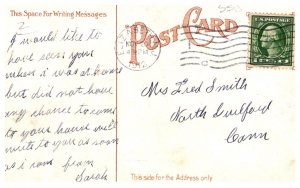 This Space For Writing Messages
POST CARD
I would like to
have seen you
when I was at home
but did not have
any chance to come
to your house will
write to you as soon
as i can from
Sarah
Mrs Fred Smith
North Guilford
Conn
This side for the Address only